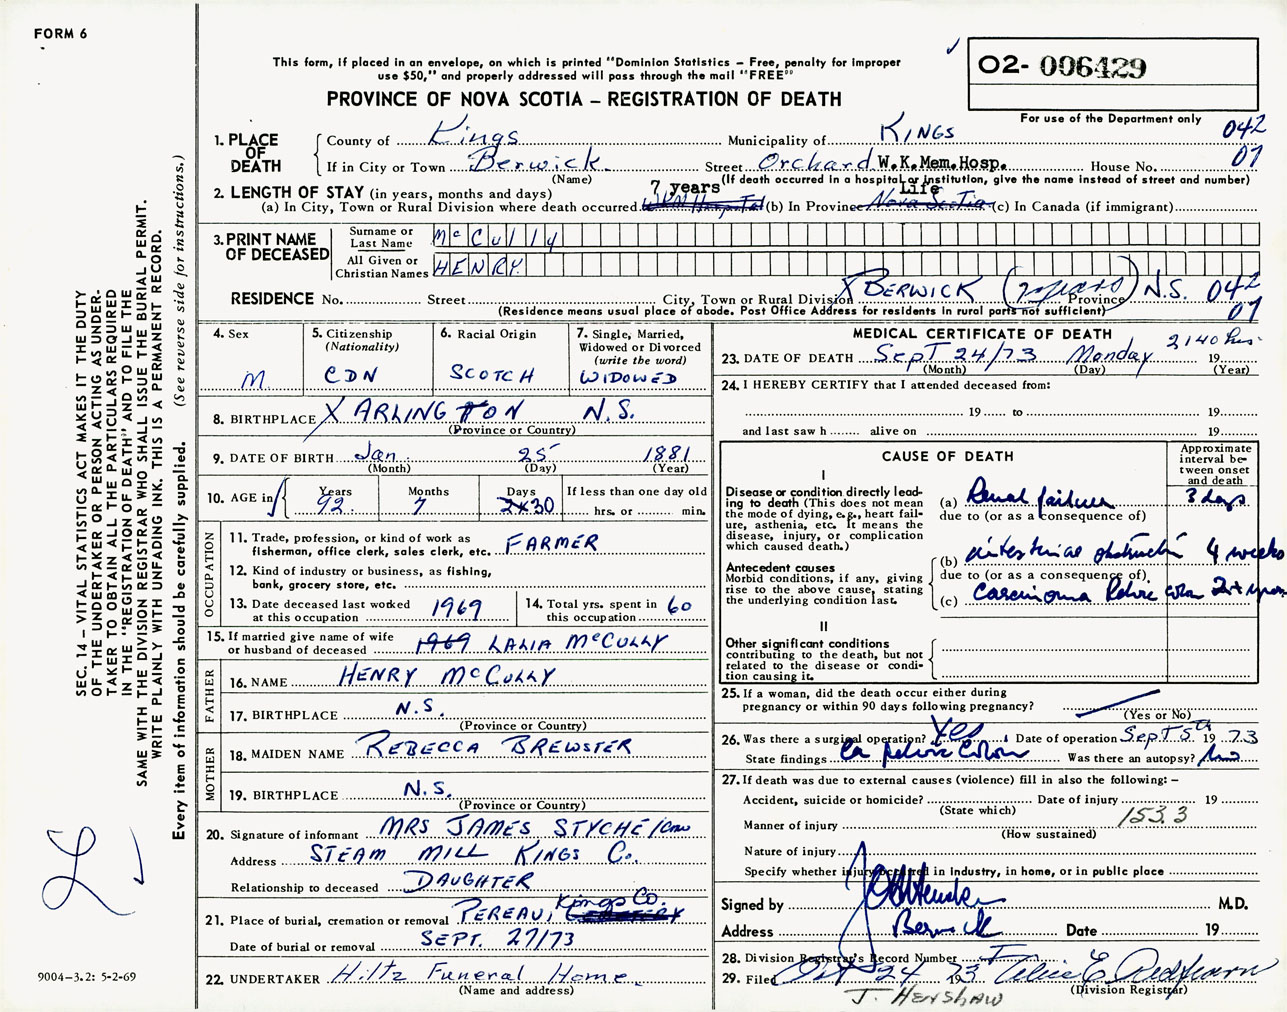 FORM 6
This form, if placed in an envelope, on which is printed "Dominion Statistics – Free, penalty for improper
use $50," and properly addressed will pass through the mail "FREE"
PROVINCE OF NOVA SCOTIA – REGISTRATION OF DEATH
02- 006429
For use of the Department only
042
07
1. PLACE OF DEATH
County of Kings Municipality of KINGS
If in City or Town Berwick Street Orchard W.K.Mem.Hosp. House No.
(Name) (If death occurred in a hospital or institution, give the name instead of street and number)
2. LENGTH OF STAY (in years, months and days) 7 years Life
(a) In City, Town or Rural Division where death occurred WKM Hospital (b) In Province Nova Scotia (c) In Canada (if immigrant)
3. PRINT NAME OF DECEASED
Surname or Last Name McCully
All Given or Christian Names HENRY
RESIDENCE No. Street City, Town or Rural Division X BERWICK (7 years) Province N.S. 042
07
(Residence means usual place of abode. Post Office Address for residents in rural parts not sufficient)
4. Sex
M.
5. Citizenship
(Nationality)
CDN
6. Racial Origin
SCOTCH
7. Single, Married,
Widowed or Divorced
(write the word)
WIDOWED
8. BIRTHPLACE X ARLINGTON N.S.
(Province or Country)
9. DATE OF BIRTH Jan. 25 1881
(Month) (Day) (Year)
10. AGE in Years Months Days If less than one day old
92. 7 30 hrs. or min.
OCCUPATION
11. Trade, profession, or kind of work as
fisherman, office clerk, sales clerk, etc. FARMER
12. Kind of industry or business, as fishing,
bank, grocery store, etc.
13. Date deceased last worked
at this occupation 1969
14. Total yrs. spent in
this occupation 60
15. If married give name of wife
or husband of deceased 1969 LALIA McCULLY
FATHER
16. NAME HENRY McCULLY
17. BIRTHPLACE N.S.
(Province or Country)
MOTHER
18. MAIDEN NAME REBECCA BREWSTER
19. BIRTHPLACE N.S.
(Province or Country)
20. Signature of informant MRS JAMES STYCHE
Address STEAM MILL KINGS Co.
Relationship to deceased DAUGHTER
21. Place of burial, cremation or removal PEREAU, Kings Co.
Date of burial or removal SEPT. 27/73
22. UNDERTAKER Hiltz Funeral Home
(Name and address)
MEDICAL CERTIFICATE OF DEATH
2140 hrs.
23. DATE OF DEATH Sept 24/73 Monday 19
(Month) (Day) (Year)
24. I HEREBY CERTIFY that I attended deceased from:
19 to 19
and last saw h alive on 19
CAUSE OF DEATH
Approximate
interval be-
tween onset
and death
I
Disease or condition directly lead-
ing to death (This does not mean
the mode of dying, e.g., heart fail-
ure, asthenia, etc. It means the
disease, injury, or complication
which caused death.)
(a) Renal failure 3 days
due to (or as a consequence of)
Antecedent causes
Morbid conditions, if any, giving
rise to the above cause, stating
the underlying condition last.
(b) intestinal obstruction 4 weeks
due to (or as a consequence of)
(c) Carcinoma Pelvic colon 2+ years
II
Other significant conditions
contributing to the death, but not
related to the disease or condi-
tion causing it.
25. If a woman, did the death occur either during
pregnancy or within 90 days following pregnancy?
(Yes or No)
26. Was there a surgical operation? Yes Date of operation Sept 5th 19 73
State findings Ca pelvic Colon Was there an autopsy? No
27. If death was due to external causes (violence) fill in also the following: –
Accident, suicide or homicide? Date of injury 19
(State which) 153.3
Manner of injury
(How sustained)
Nature of injury
Specify whether injury occurred in industry, in home, or in public place
Signed by M.D.
Address Berwick Date 19
28. Division Registrar's Record Number
29. Filed Oct 24 1973
(Division Registrar)
J. HENSHAW
SEC. 14 – VITAL STATISTICS ACT MAKES IT THE DUTY
OF THE UNDERTAKER OR PERSON ACTING AS UNDER-
TAKER TO OBTAIN ALL THE PARTICULARS REQUIRED
IN THE "REGISTRATION OF DEATH" AND TO FILE THE
SAME WITH THE DIVISION REGISTRAR WHO SHALL ISSUE THE BURIAL PERMIT.
WRITE PLAINLY WITH UNFADING INK. THIS IS A PERMANENT RECORD.
Every item of information should be carefully supplied. (See reverse side for instructions.)
9004–3.2: 5-2-69